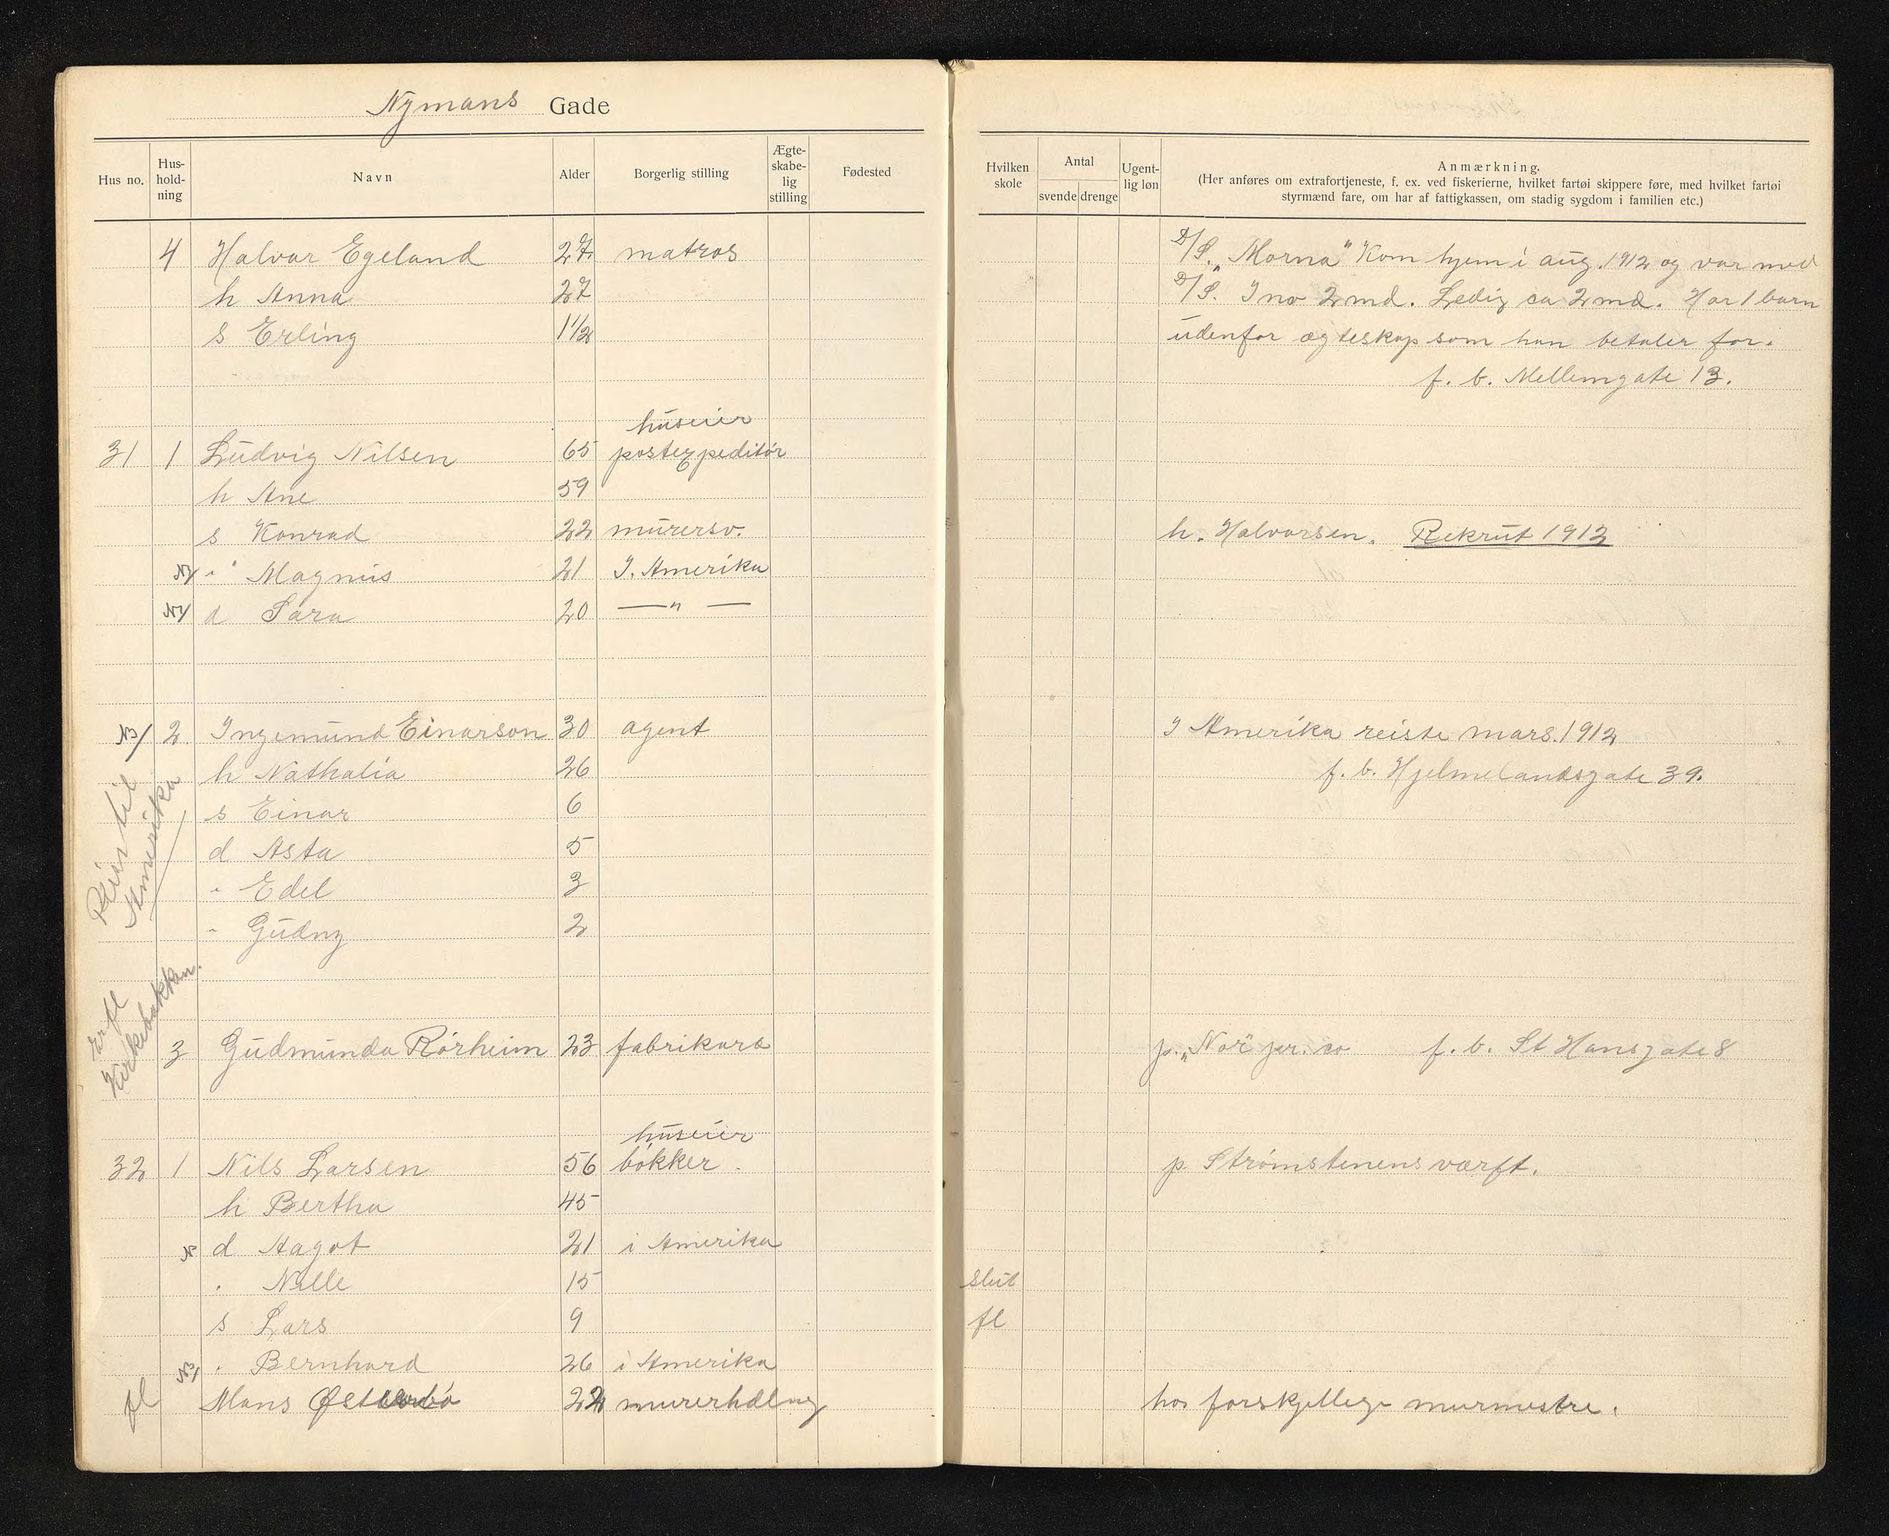 Nymans Gade
Hus no. Hus-holdning Navn Alder Borgerlig stilling Ægte-skabe-lig stilling Fødested
Hvilken skole Antal svende drenge Ugent-lig løn Anmærkning.
(Her anføres om extrafortjeneste, f. ex. ved fiskerierne, hvilket fartøi skippere føre, med hvilket fartøi
styrmænd fare, om har af fattigkassen, om stadig sygdom i familien etc.)
4 Halvar Egeland 27 matros D/S. "Morna" Kom hjem i aug. 1912 og var med
h Anna 27 D/S. "Ino 2 md. Ledig ca 2 md. Har 1 barn
s Erling 1 1/2 udenfor ægteskap som han betaler for.
f. b. Mellemgate 13.
huseier
31 1 Ludvig Nilsen 65 postexpeditør
h Ane 59
s Konrad 22 murersv. h. Halvorsen. Rekrut 1912
" Magnus 21 I. Amerika
d Sara 20 — " —
2 Ingemund Einarson 30 agent I Amerika reiste mars. 1912
h Nathalia 26 f. b. Hjelmelandsgate 39.
s Einar 6
d Asta 5
" Edel 3
" Gudny 2
Reist til
Amerika
Er fl
Kirkebakken.
3 Gudmunda Rørheim 23 fabrikarb p. "Nor" pr. co f. b. St Hansgate 8
huseier
32 1 Nils Larsen 56 bøkker. p. Strømstenens værft.
h Bertha 45
N d Aagot 21 i Amerika
" Nille 15 slut
s Lars 9 fl
" Bernhard 26 i Amerika
fl Mons 22 murerhdlng hos forskjellige murmestre.